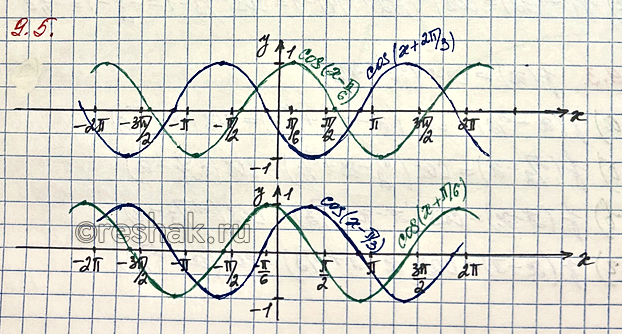 9.5.
y
1
cos(x-π/6)
cos(x+2π/3)
-2π -3π/2 -π -π/2 π/6 π/2 π 3π/2 2π x
-1
y
1
cos(x-π/3)
cos(x+π/6)
©reshak.ru
-2π -3π/2 -π -π/2 -π/6 π/2 π 3π/2 2π x
-1